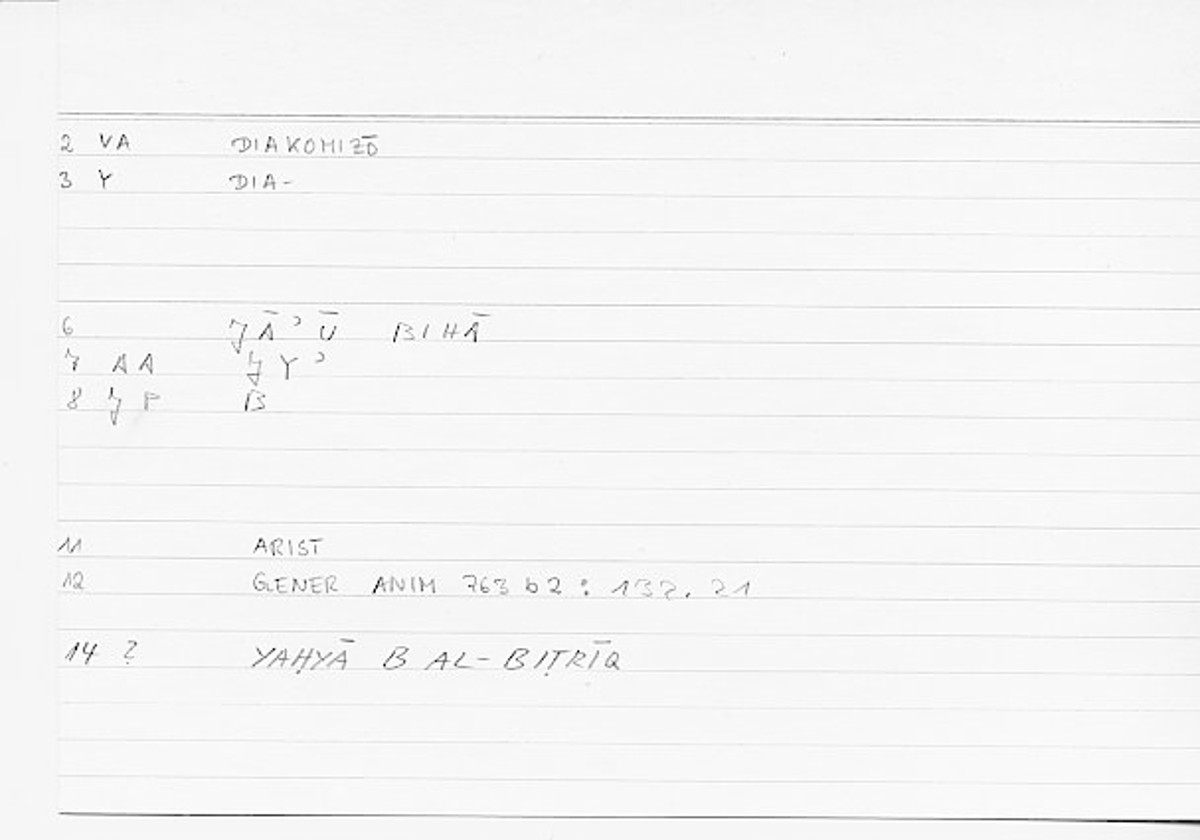 2 VA DIAKOMIZŌ
3 Y DIA-
6 ǦĀʾŪ BIHĀ
7 AA ǦYʾ
8 ǦP B
11 ARIST
12 GENER ANIM 763 b 2 : 132. 21
14 ? YAḤYĀ B AL-BIṬRĪQ